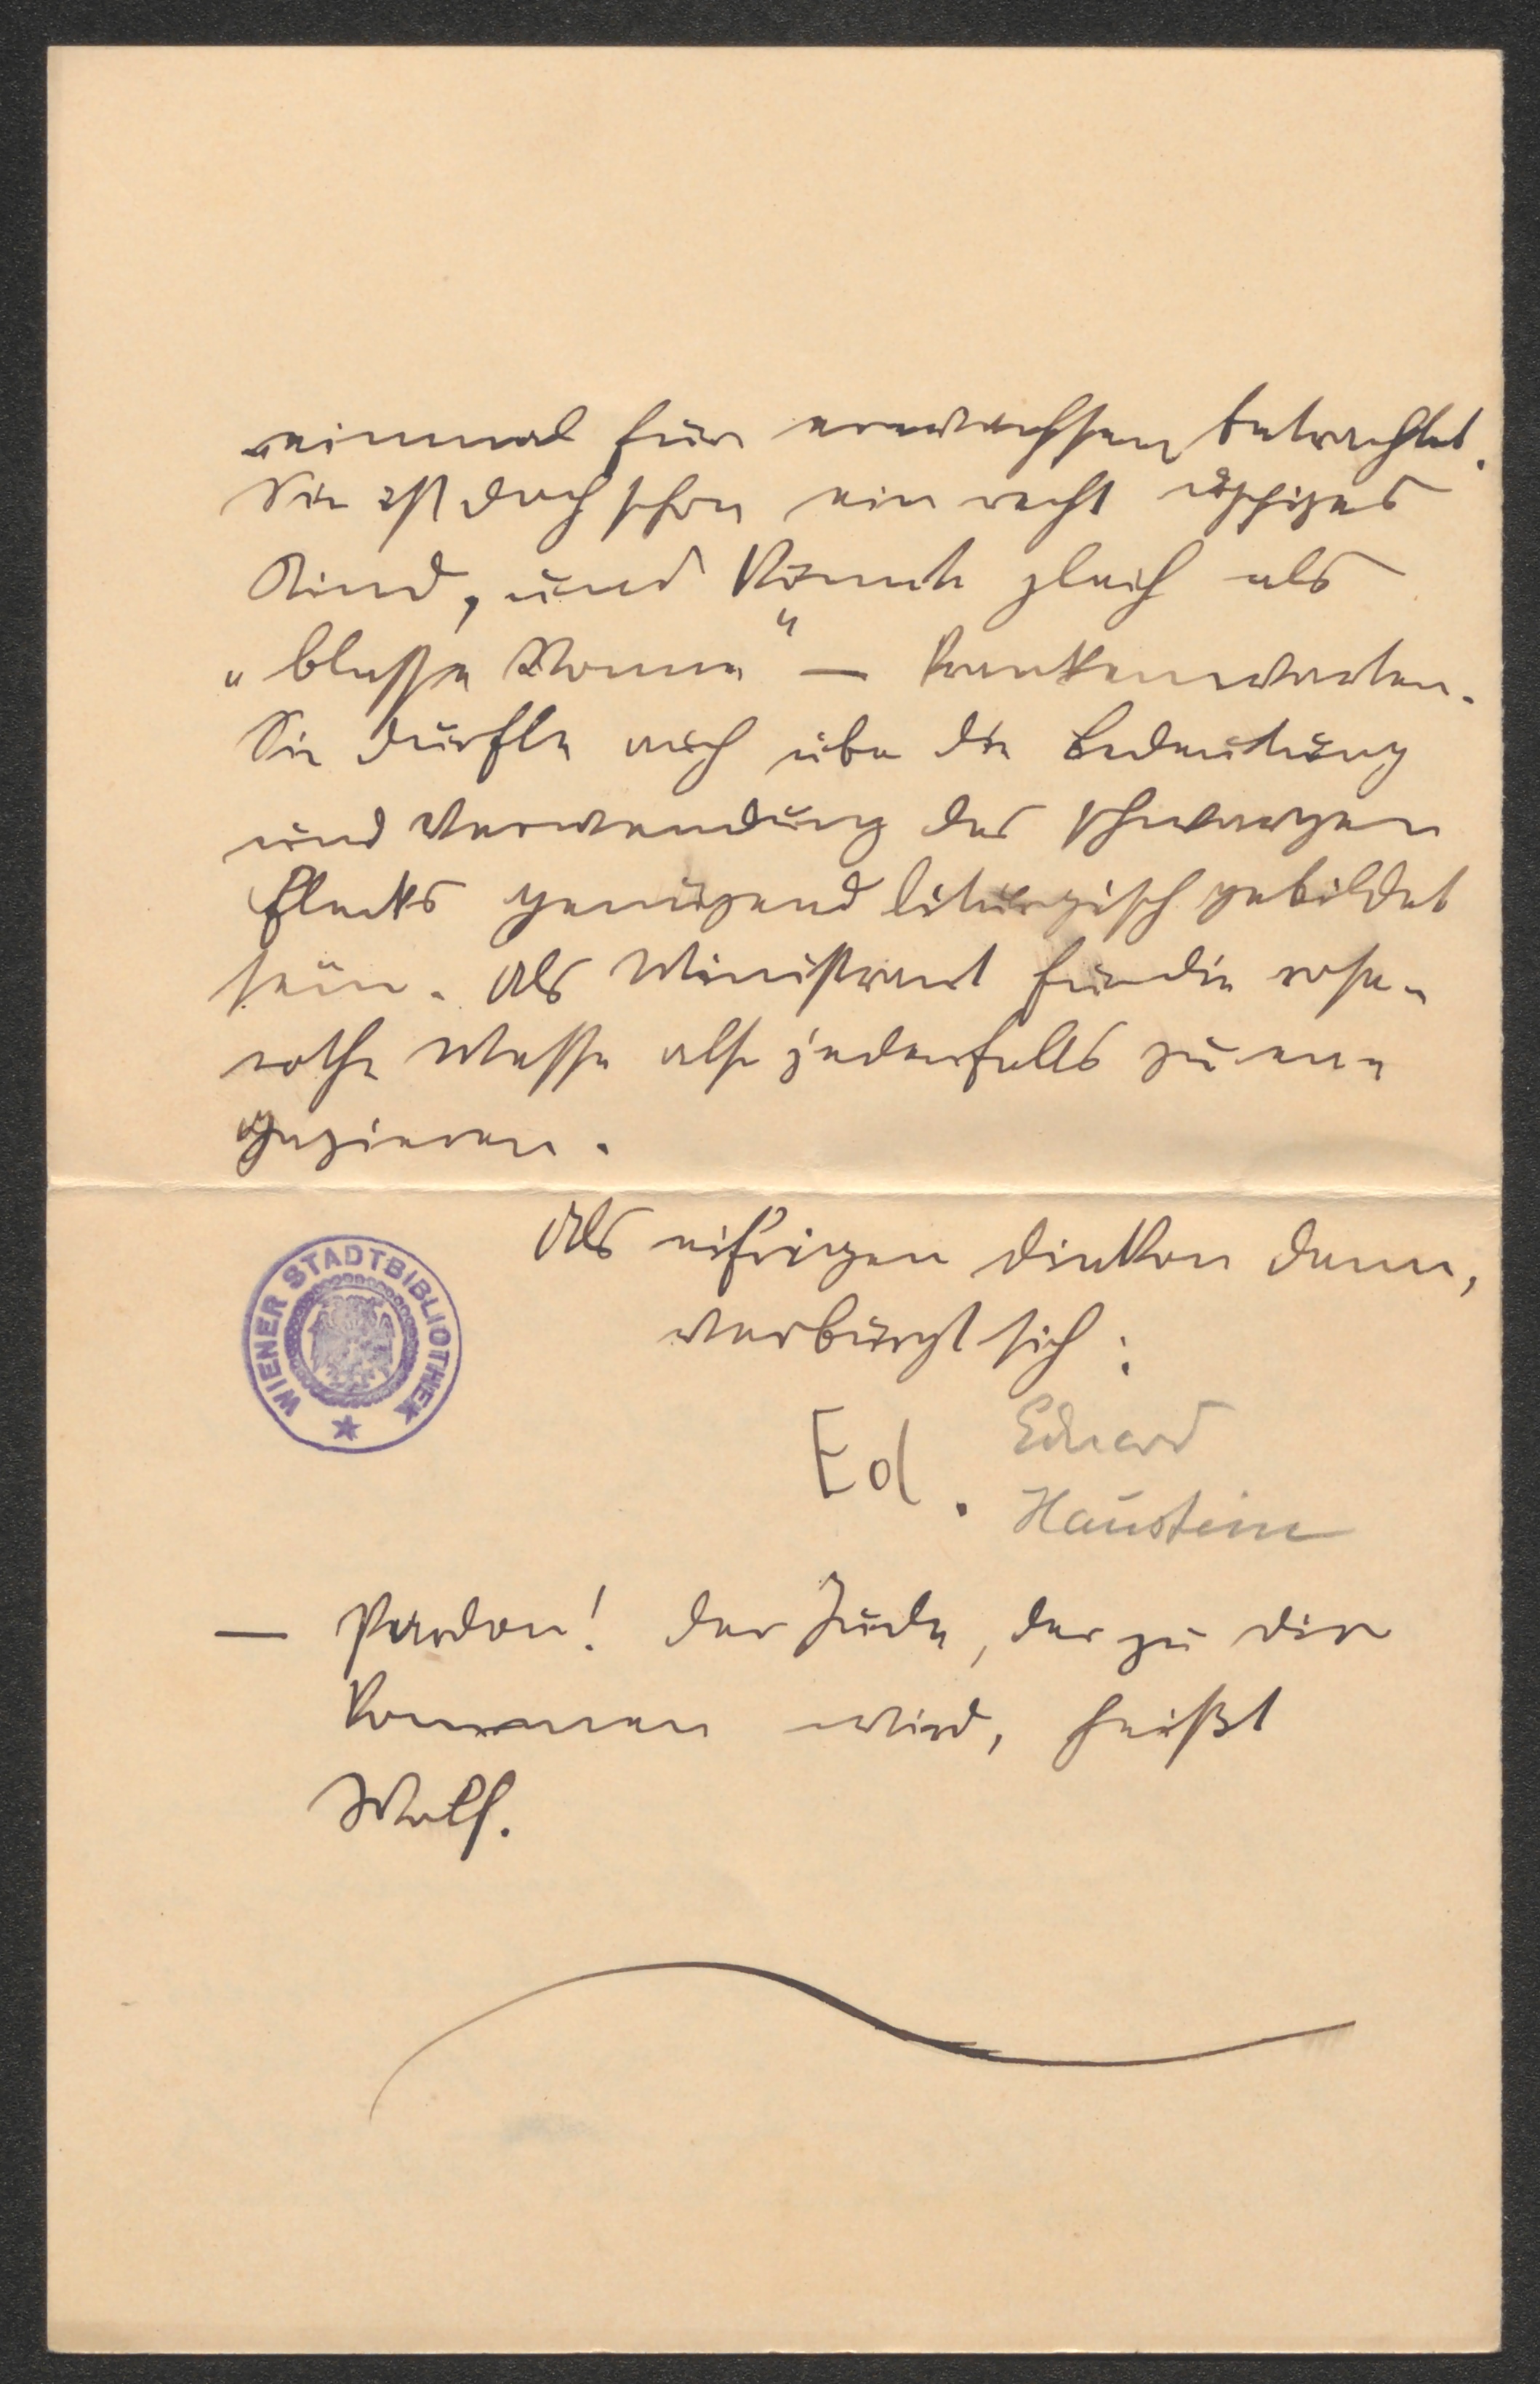 einmal für erwachsen betrachtet.
Sie ist doch schon ein recht üppiges
Kind, und könnte gleich als
„blasse Nonne" — krankenwarten.
Sie dürfte auch über die Bedeutung
und Verwendung des schwarzen
Flecks genügend liturgisch gebildet
sein. Als Ministrant für die rosa-
rothe Messe also jedenfalls zu en-
gagieren.
Als eifrigen Diakon dann,
verbürgt sich:
Ed. Eduard
Haustein
WIENER STADTBIBLIOTHEK
— Pardon! Der Jude, der zu dir
kommen wird, heißt
Wolf.